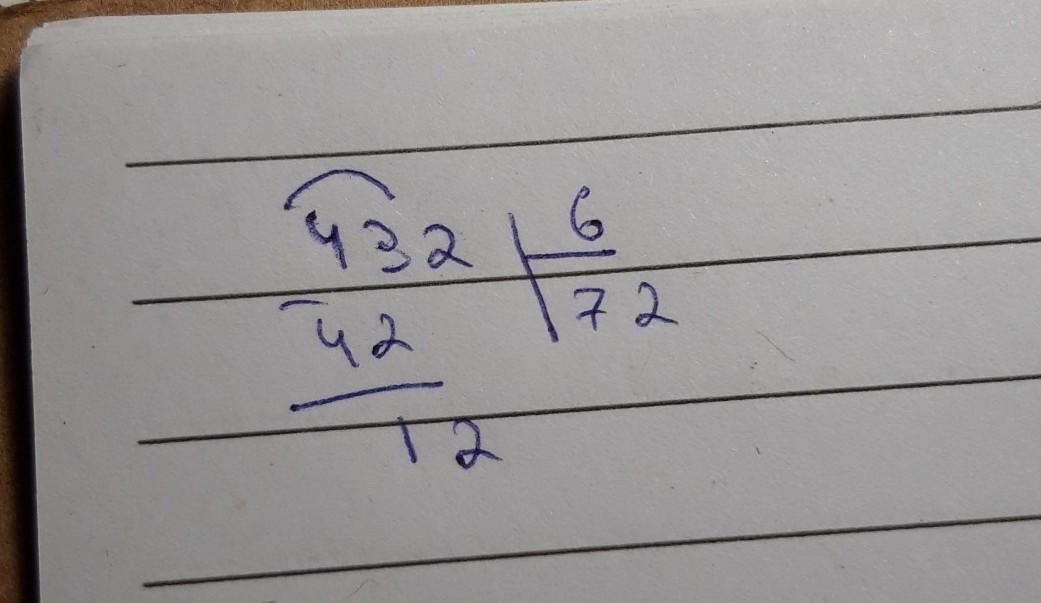 432 | 6
- 42 | 72
12